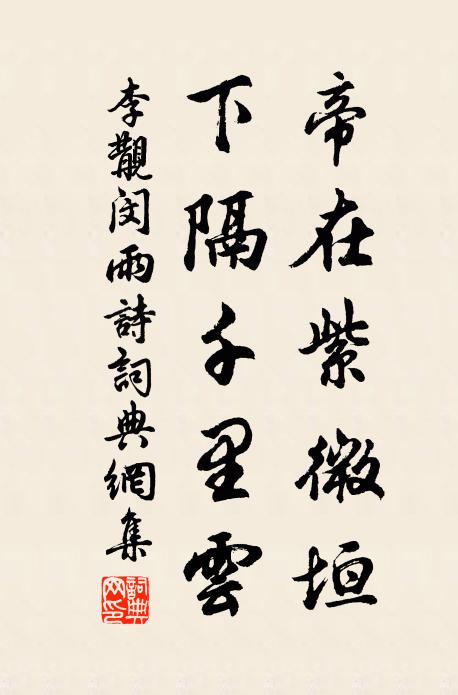 帝在紫微垣
下隔千里雲
李覯閔雨詩詞典網集
詞典網印